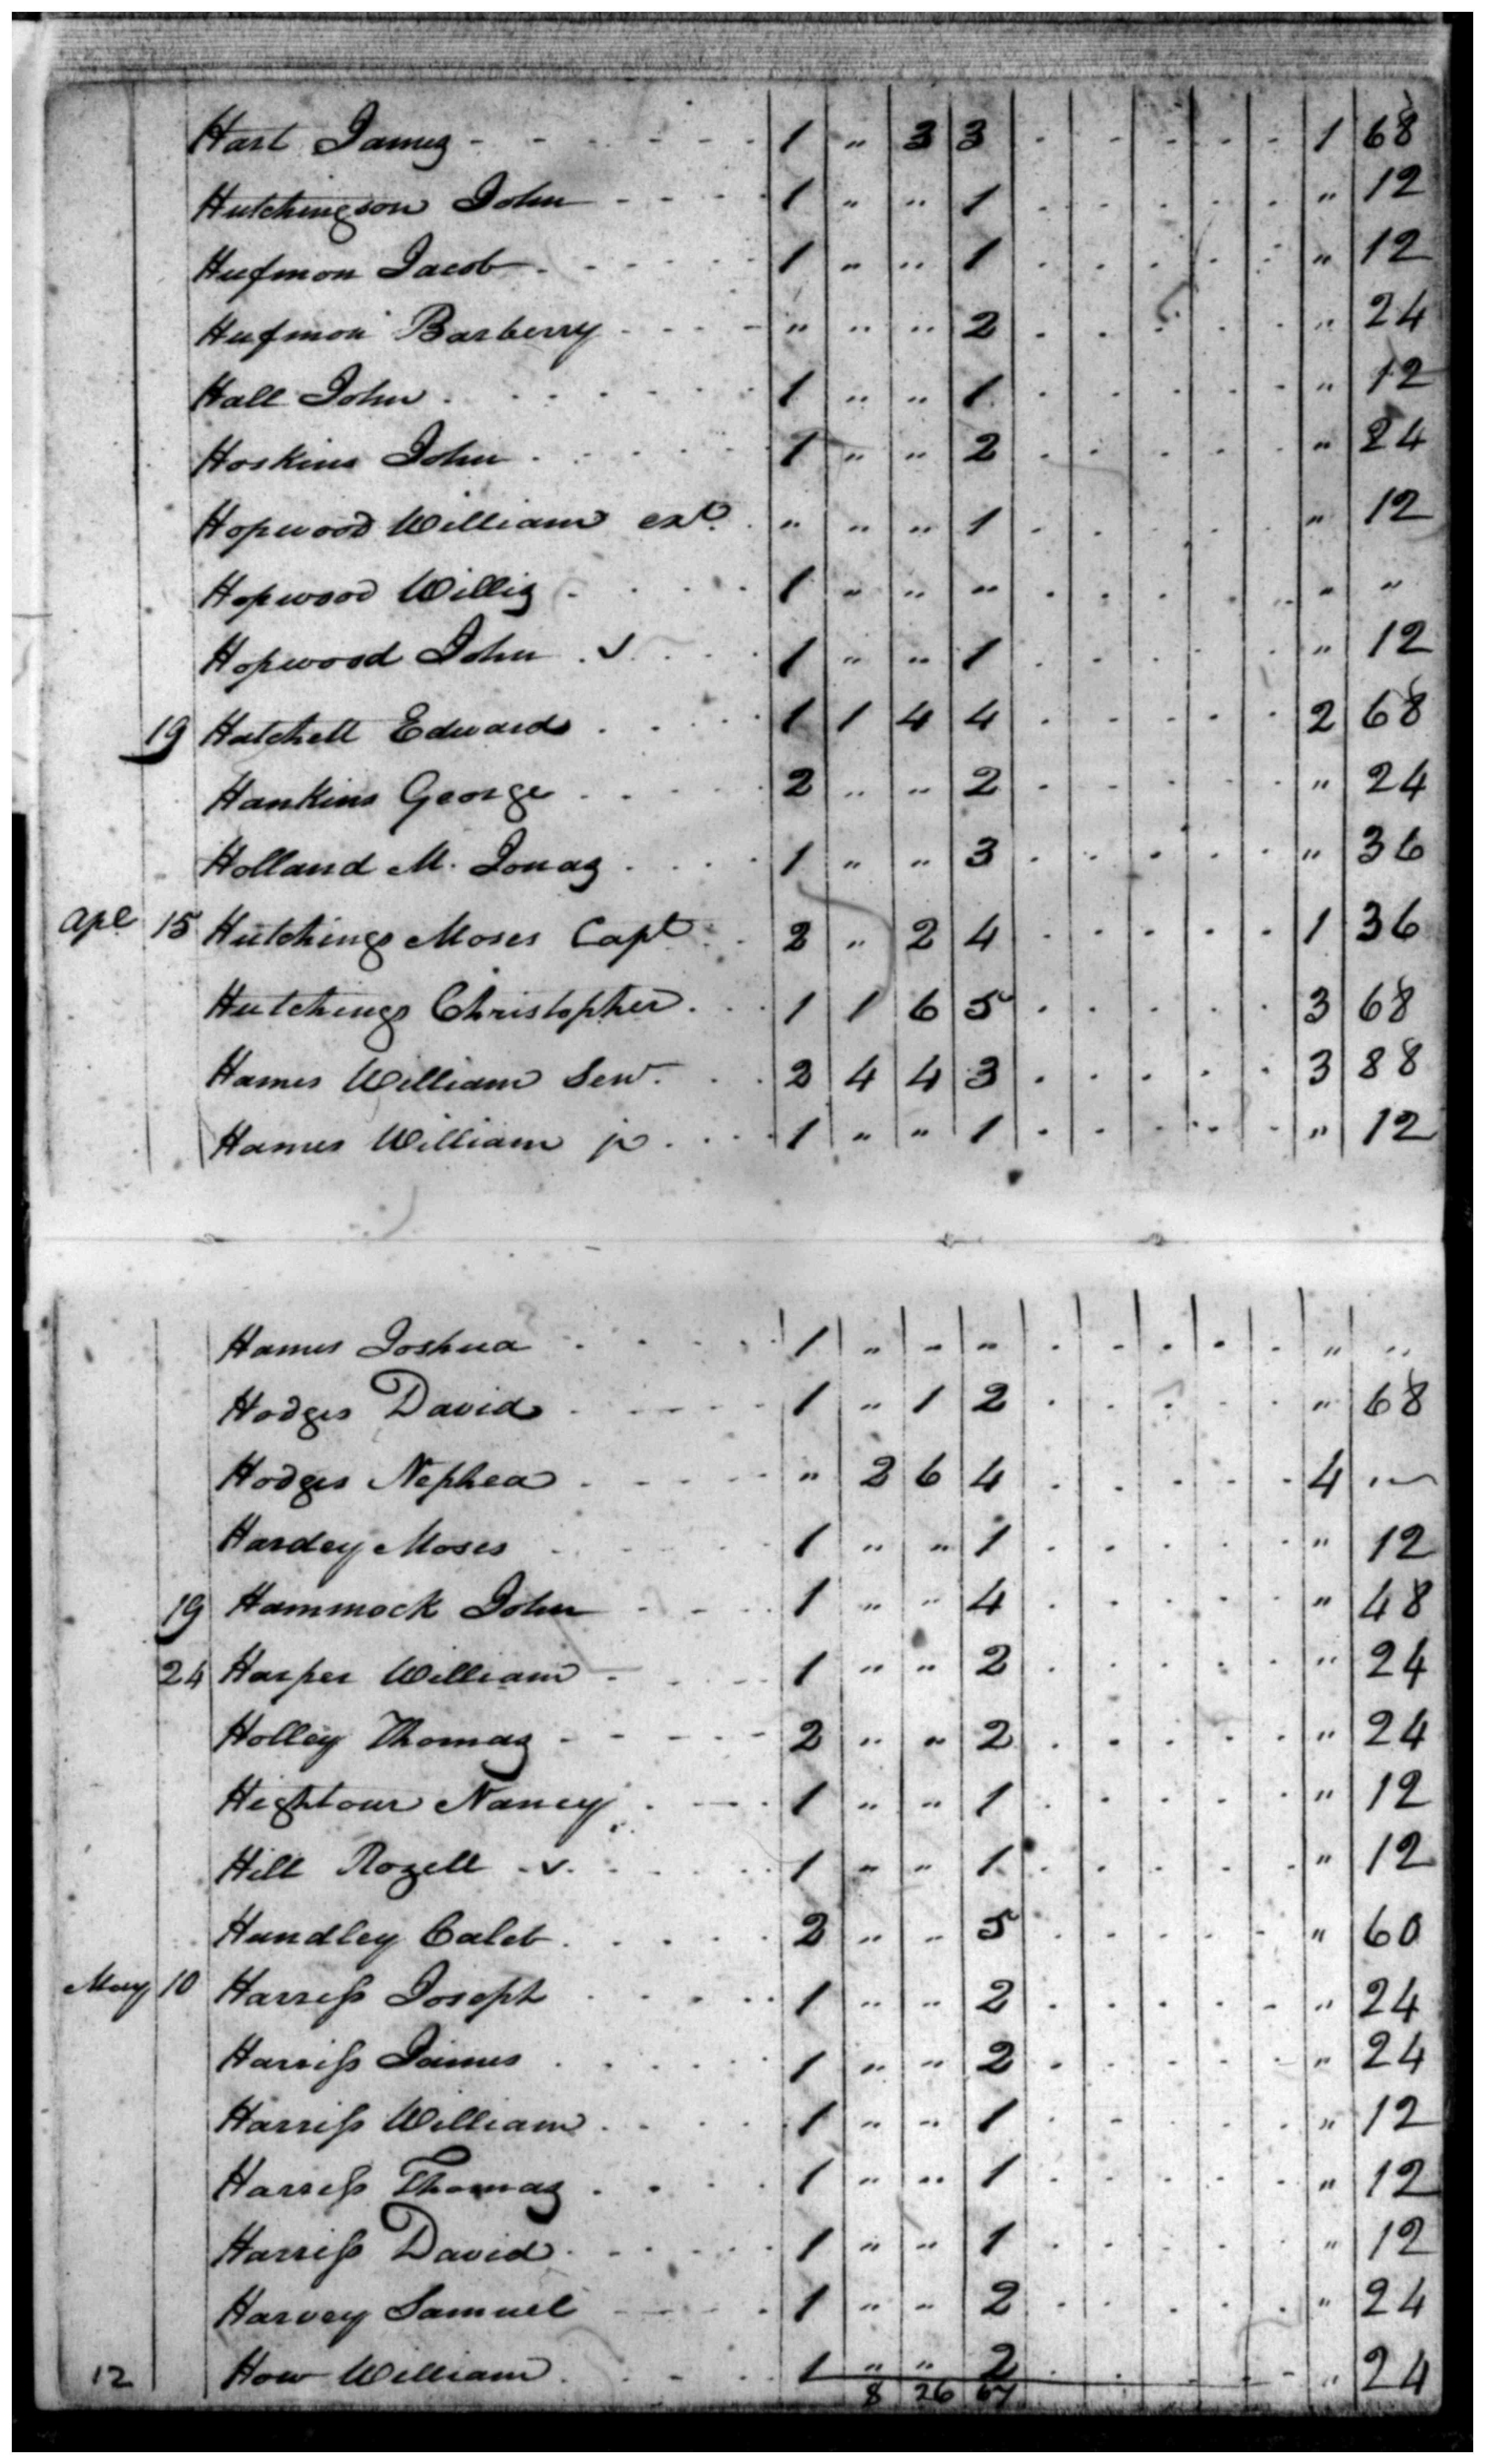 Hart James - - - - - - 1 " 3 3 . - - - - 1 68
Hutchingson John - - - - 1 " " 1 . . . . . " 12
Hufmon Jacob . - - - - 1 " " 1 . . . . . " 12
Hufmon Barberry - - - - " " " 2 . . . . . " 24
Hall John . . . . . . 1 " " 1 . . . . - " 12
Hoskins John . . . . . 1 " " 2 . . . . . " 24
Hopwood William ext. . " " " 1 . . . . . " 12
Hopwood Willis . . . . 1 " " " . . . . . " "
Hopwood John . v . . . 1 " " 1 . . . . . " 12
19 Hatchett Edward . . . . 1 1 4 4 . . . . . 2 68
Hankins George . . . . . 2 " " 2 . . . . . " 24
Holland M. Jonas . . . . 1 " " 3 . . . . . " 36
Apl 15 Hutchings Moses Capt . . 2 " 2 4 . . . . . 1 36
Hutchings Christopher . . . 1 1 6 5 . . . . . 3 68
Hames William Senr. . . 2 4 4 3 . . . . . 3 88
Hames William jr . . . . 1 " " 1 . . . . . " 12
Hames Joshua . . . . . 1 " " " . . . . . " "
Hodges David . - - - - 1 " 1 2 . . . . . " 68
Hodges Nephea . . - - - " 2 6 4 . . . . . 4 "
Hardey Moses . . . . . 1 " " 1 . . . . . " 12
19 Hammock John - - - . 1 " " 4 . . . . . " 48
24 Harper William - . . . . 1 " " 2 . . . . . " 24
Holley Thomas - - - - - 2 " " 2 . . . . . " 24
Hightour Nancy . - - . 1 " " 1 . . . . . " 12
Hill Rozell . v . . . . 1 " " 1 . . . . . " 12
Hundley Caleb . . . . . 2 " " 5 . . . . . " 60
May 10 Harriss Joseph . . . . . 1 " " 2 . . . . - " 24
Harriss James . . . . . 1 " " 2 . . . . . " 24
Harriss William . . . . 1 " " 1 . . . . . " 12
Harriss Thomas . . . . 1 " " 1 . . . . . " 12
Harriss David . . . . . 1 " " 1 . . . . . " 12
Harvey Samuel - - - . 1 " " 2 . . . . . " 24
12 How William . . . . . 1 " " 2 . . . . - " 24
8 26 67